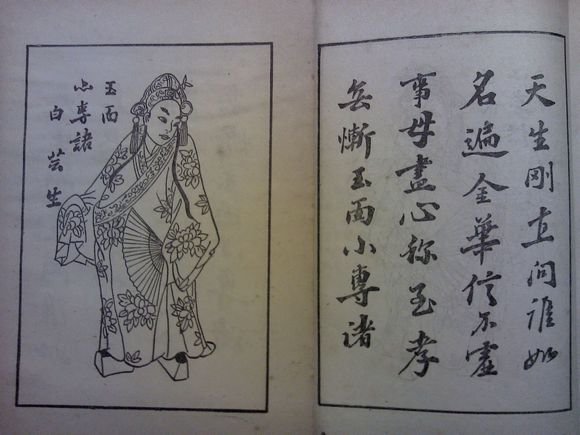 天生剛直問誰如
名遍金華信不虛
事母盡心称至孝
無慚玉面小專諸
玉面
小專諸
白芸生